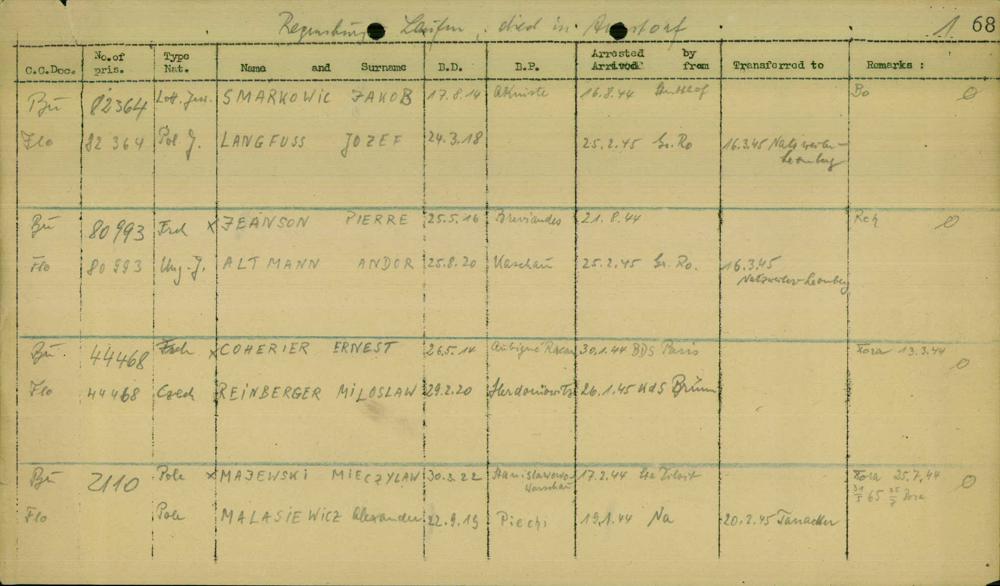 Regensburg Laufen, died in Arnstorf
1. 68
C.C.Doc. No.of pris. Type Nat. Name and Surname B.D. B.P. Arrested by Arrived from Transferred to Remarks :
Bu 82364 Lett. Jew. SMARKOWIC JAKOB 17.8.14 Akniste 16.8.44 Stutthof Bo
Flo 82 364 Pol J. LANGFUSS JOZEF 24.3.18 25.2.45 Gr. Ro 16.3.45 Natzweiler-
Leonberg
Bu 80993 Frch x JEANSON PIERRE 25.5.16 Breviandes 21.8.44 Rch
Flo 80993 Ung. J. ALTMANN ANDOR 25.8.20 Kaschau 25.2.45 Gr. Ro. 16.3.45
Natzweiler-Leonberg
Bu 44468 Frch x COHERIER ERNEST 26.5.14 Aubigné 30.1.44 BDS Paris Dora 13.3.44
Flo 44468 Czech REINBERGER MILOSLAW 29.2.20 26.1.45 KdS Brünn
Bu 2110 Pole x MAJEWSKI MIECZYLAW 30.3.22 Stanislawowo- 17.2.44 Dora 25.7.44
Warschau 65 Dora
Flo Pole MALASIEWICZ Alexander 22.9.19 Piechi 19.1.44 Na 20.2.45 Ganacker